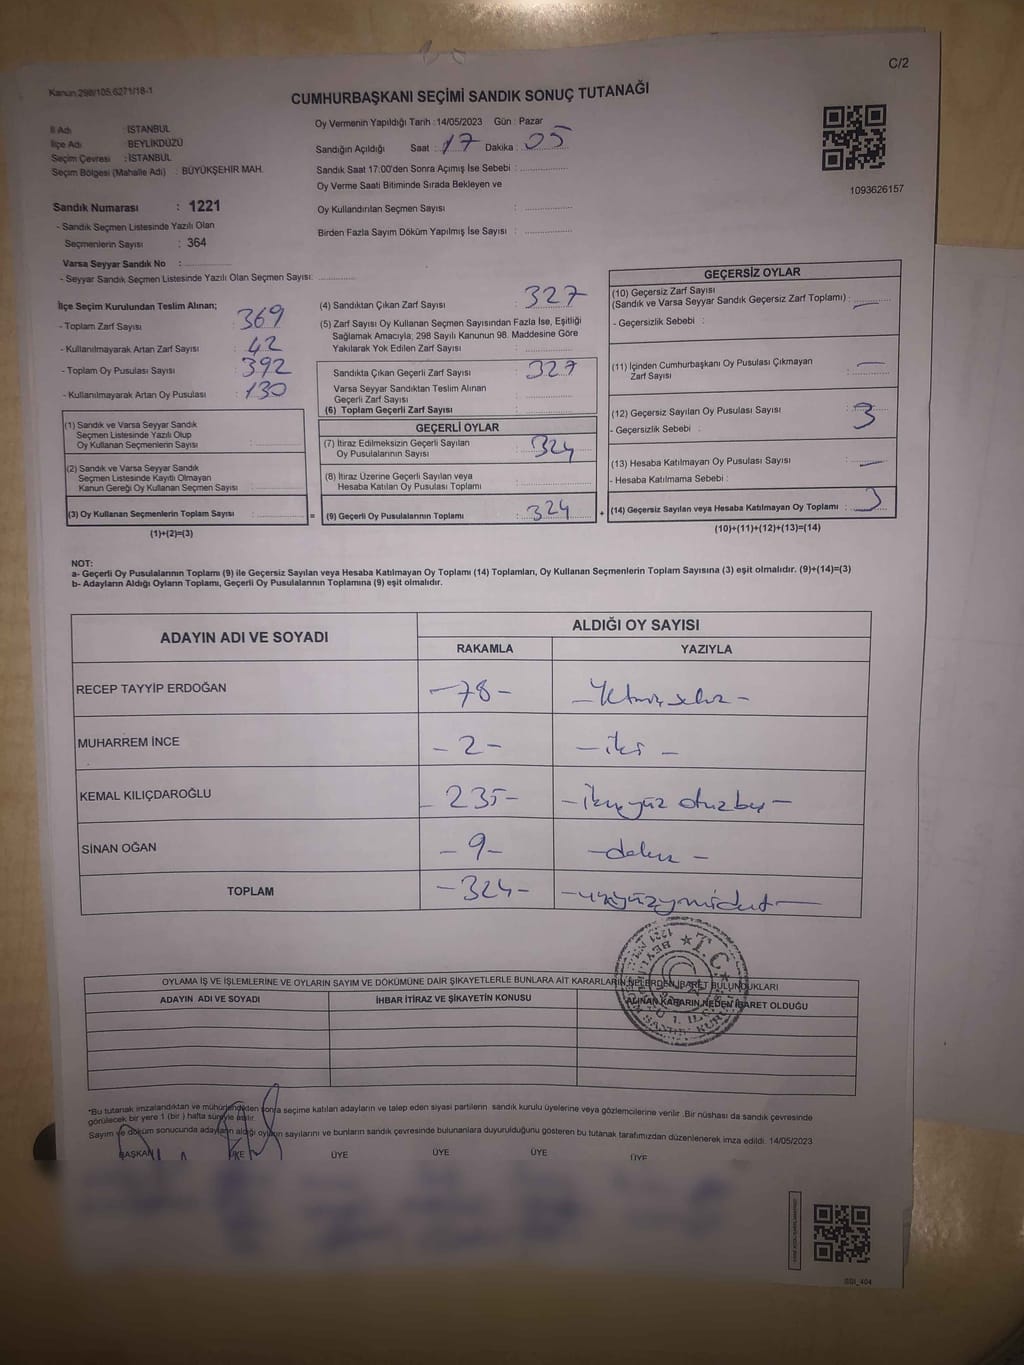 C/2
Kanun 298/105.6271/18-1
CUMHURBAŞKANI SEÇİMİ SANDIK SONUÇ TUTANAĞI
İl Adı : İSTANBUL
İlçe Adı : BEYLİKDÜZÜ
Seçim Çevresi : İSTANBUL
Seçim Bölgesi (Mahalle Adı) : BÜYÜKŞEHİR MAH.
Sandık Numarası : 1221
- Sandık Seçmen Listesinde Yazılı Olan
Seçmenlerin Sayısı : 364
Varsa Seyyar Sandık No :
- Seyyar Sandık Seçmen Listesinde Yazılı Olan Seçmen Sayısı:
Oy Vermenin Yapıldığı Tarih :14/05/2023 Gün : Pazar
Sandığın Açıldığı Saat : 17 Dakika : 05
Sandık Saat 17:00'den Sonra Açımış İse Sebebi :
Oy Verme Saati Bitiminde Sırada Bekleyen ve
Oy Kullandırılan Seçmen Sayısı :
Birden Fazla Sayım Döküm Yapılmış İse Sayısı :
1093626157
İlçe Seçim Kurulundan Teslim Alınan;
- Toplam Zarf Sayısı : 369
- Kullanılmayarak Artan Zarf Sayısı : 42
- Toplam Oy Pusulası Sayısı : 392
- Kullanılmayarak Artan Oy Pusulası : 130
(1) Sandık ve Varsa Seyyar Sandık
Seçmen Listesinde Yazılı Olup
Oy Kullanan Seçmenlerin Sayısı :
(2) Sandık ve Varsa Seyyar Sandık
Seçmen Listesinde Kayıtlı Olmayan
Kanun Gereği Oy Kullanan Seçmen Sayısı :
(3) Oy Kullanan Seçmenlerin Toplam Sayısı :
(1)+(2)=(3)
(4) Sandıktan Çıkan Zarf Sayısı : 327
(5) Zarf Sayısı Oy Kullanan Seçmen Sayısından Fazla İse, Eşitliği
Sağlamak Amacıyla; 298 Sayılı Kanunun 98. Maddesine Göre
Yakılarak Yok Edilen Zarf Sayısı :
Sandıkta Çıkan Geçerli Zarf Sayısı : 327
Varsa Seyyar Sandıktan Teslim Alınan
Geçerli Zarf Sayısı :
(6) Toplam Geçerli Zarf Sayısı :
GEÇERLİ OYLAR
(7) İtiraz Edilmeksizin Geçerli Sayılan
Oy Pusulalarının Sayısı : 324
(8) İtiraz Üzerine Geçerli Sayılan veya
Hesaba Katılan Oy Pusulası Toplamı :
= (9) Geçerli Oy Pusulalarının Toplamı : 324
GEÇERSİZ OYLAR
(10) Geçersiz Zarf Sayısı
(Sandık ve Varsa Seyyar Sandık Geçersiz Zarf Toplamı) : —
- Geçersizlik Sebebi :
(11) İçinden Cumhurbaşkanı Oy Pusulası Çıkmayan
Zarf Sayısı : —
(12) Geçersiz Sayılan Oy Pusulası Sayısı : 3
- Geçersizlik Sebebi :
(13) Hesaba Katılmayan Oy Pusulası Sayısı : —
- Hesaba Katılmama Sebebi :
+ (14) Geçersiz Sayılan veya Hesaba Katılmayan Oy Toplamı : 3
(10)+(11)+(12)+(13)=(14)
NOT:
a- Geçerli Oy Pusulalarının Toplamı (9) ile Geçersiz Sayılan veya Hesaba Katılmayan Oy Toplamı (14) Toplamları, Oy Kullanan Seçmenlerin Toplam Sayısına (3) eşit olmalıdır. (9)+(14)=(3)
b- Adayların Aldığı Oyların Toplamı, Geçerli Oy Pusulalarının Toplamına (9) eşit olmalıdır.
ADAYIN ADI VE SOYADI
ALDIĞI OY SAYISI
RAKAMLA YAZIYLA
RECEP TAYYİP ERDOĞAN -78- - Yetmiş sekiz -
MUHARREM İNCE - 2 - - iki -
KEMAL KILIÇDAROĞLU - 235 - - ikiyüz otuzbeş -
SİNAN OĞAN - 9 - - dokuz -
TOPLAM - 324 - - üçyüzyirmidört -
OYLAMA İŞ VE İŞLEMLERİNE VE OYLARIN SAYIM VE DÖKÜMÜNE DAİR ŞİKAYETLERLE BUNLARA AİT KARARLARIN NELERDEN İBARET BULUNDUKLARI
ADAYIN ADI VE SOYADI İHBAR İTİRAZ VE ŞİKAYETİN KONUSU ALINAN KARARIN NEDEN İBARET OLDUĞU
T.C.
*Bu tutanak imzalandıktan ve mühürlendikten sonra seçime katılan adayların ve talep eden siyasi partilerin sandık kurulu üyelerine veya gözlemcilerine verilir .Bir nüshası da sandık çevresinde
görülecek bir yere 1 (bir ) hafta süreyle asılır.
Sayım ve döküm sonucunda adayların aldığı oyların sayılarını ve bunların sandık çevresinde bulunanlara duyurulduğunu gösteren bu tutanak tarafımızdan düzenlenerek imza edildi. 14/05/2023
BAŞKAN ÜYE ÜYE ÜYE ÜYE